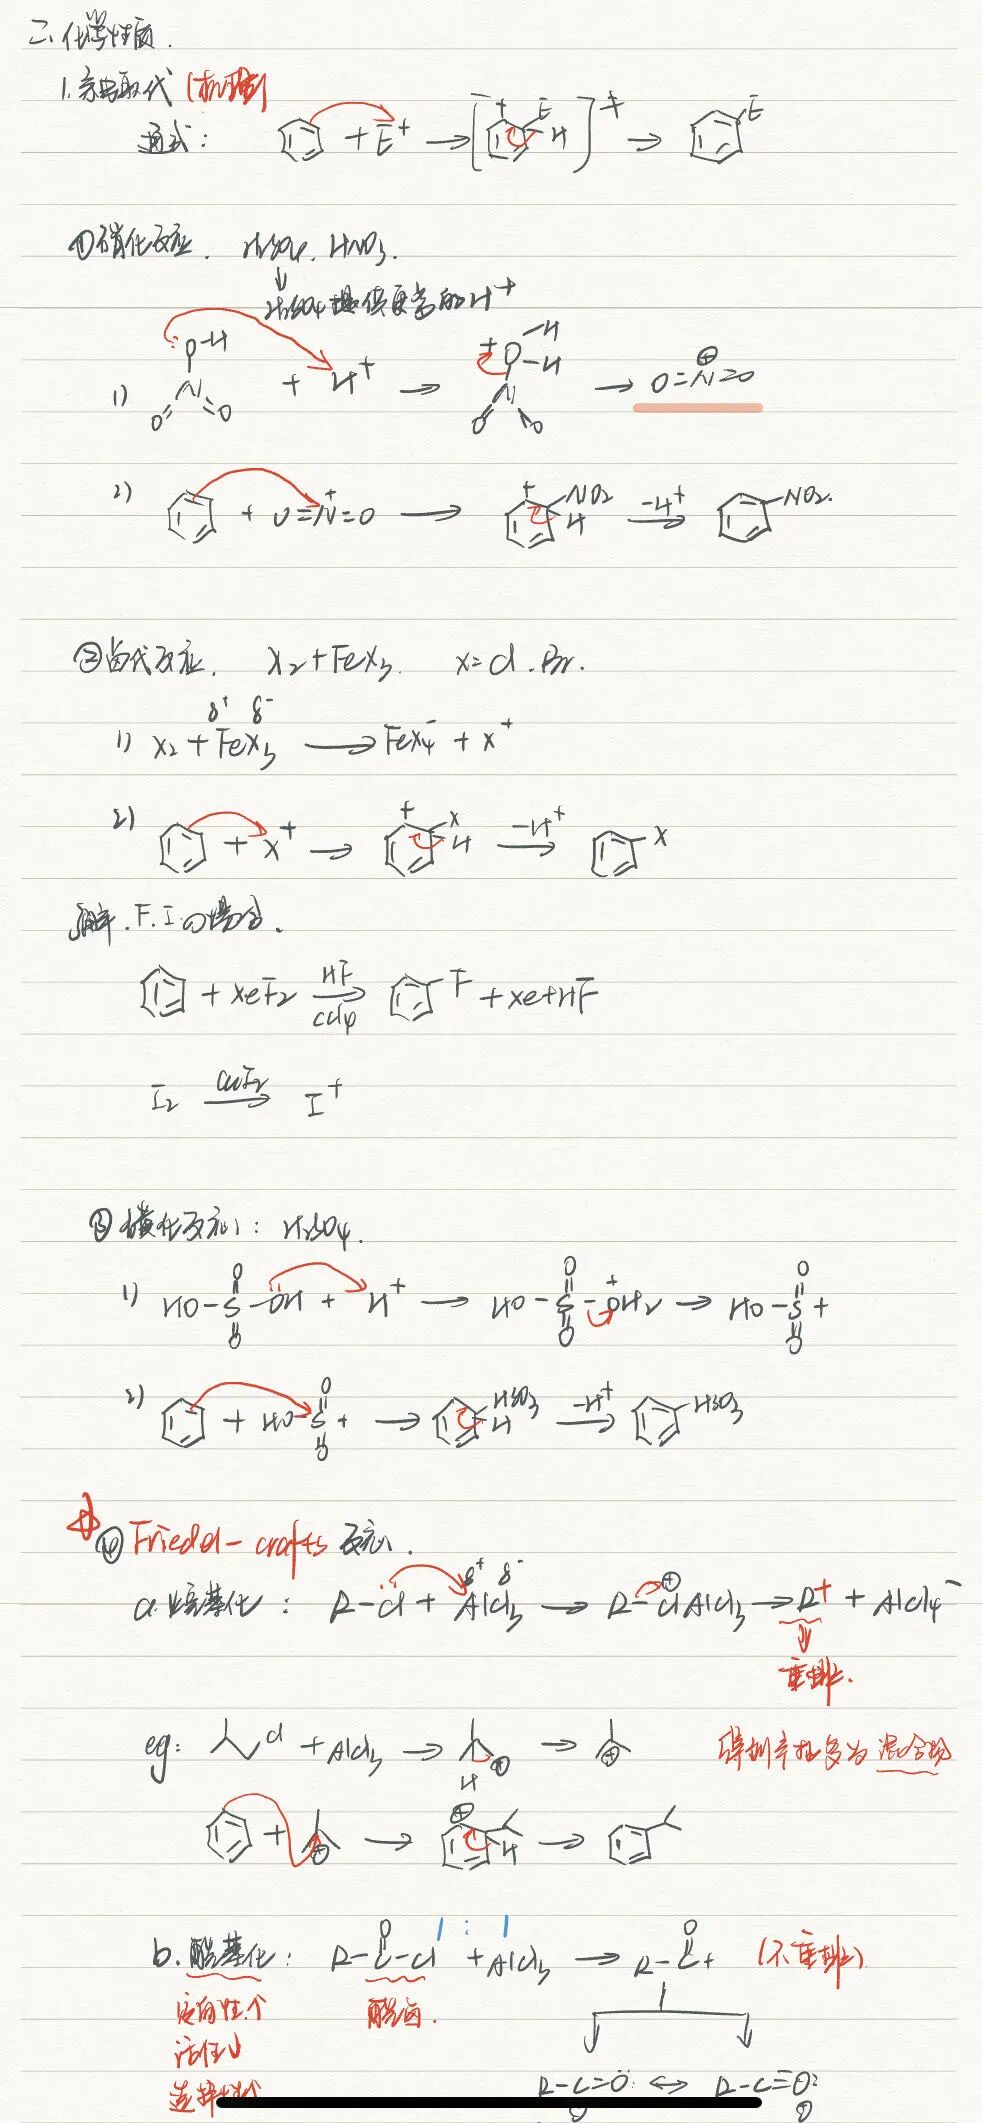 二、化学性质.
1. 亲电取代 (机理)
通式: + E⁺ → [ + E H ]⁺ → E
①硝化反应. H₂SO₄. HNO₃.
H₂SO₄提供更多的H⁺
1) O-H N O O + H⁺ → + O-H -H N O O → O=N=O ⊕
2) + O=N⁺=O → + NO₂ H -H⁺ → NO₂.
②卤代反应. X₂+FeX₃. X=Cl.Br.
δ⁺ δ⁻
1) X₂ + FeX₃ → FeX₄⁻ + X⁺
2) + X⁺ → + X H -H⁺ → X
F.I.の場合.
+ XeF₂ HF CCl₄ → F + Xe+HF
I₂ CuI₂ → I⁺
③磺化反应: H₂SO₄.
1) HO-S-OH O O + H⁺ → HO-S-OH₂ O O + → HO-S+ O O
2) + HO-S+ O O → HSO₃ H -H⁺ → HSO₃
④Friedel-crafts 反应.
a.烷基化: R-Cl + AlCl₃ δ⁺ δ⁻ → R-Cl AlCl₃ ⊕ → R⁺ + AlCl₄⁻
重排.
eg: Cl + AlCl₃ → H ⊕ → ⊕ 混合物
+ ⊕ → ⊕ H →
1 : 1
b.酰基化: R-C-Cl O + AlCl₃ → R-C+ O (不重排)
定向性个 酰卤.
活性↓
R-C=O: ↔ R-C≡O:
⊕ ⊕